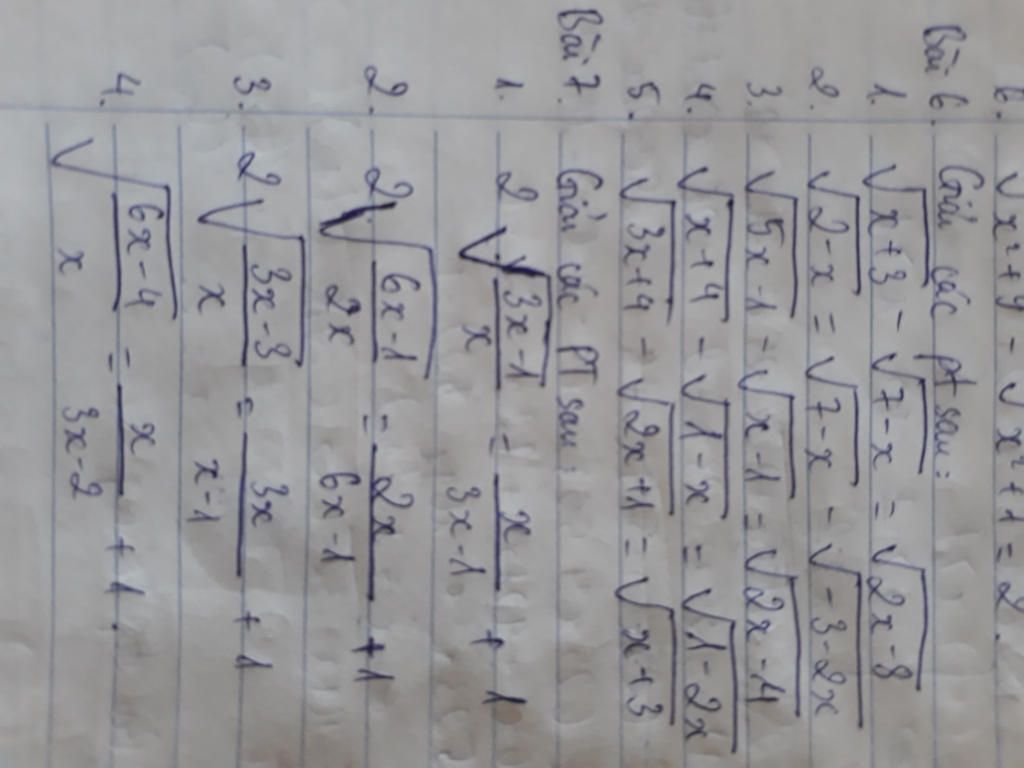 6. √x²+9 - √x²+1 = 2.
Bài 6. Giải các pt sau:
1. √x+3 - √7-x = √2x-8
2. √2-x = √7-x - √-3-2x
3. √5x-1 - √x-1 = √2x-4
4. √x+4 - √1-x = √1-2x
5. √3x+4 - √2x+1 = √x+3
Bài 7. Giải các PT sau:
1. 2√(3x-1)/x = x/(3x-1) + 1
2. 2√(6x-1)/2x = 2x/(6x-1) + 1
3. 2√(3x-3)/x = 3x/(x-1) + 1
4. √(6x-4)/x = x/(3x-2) + 1.